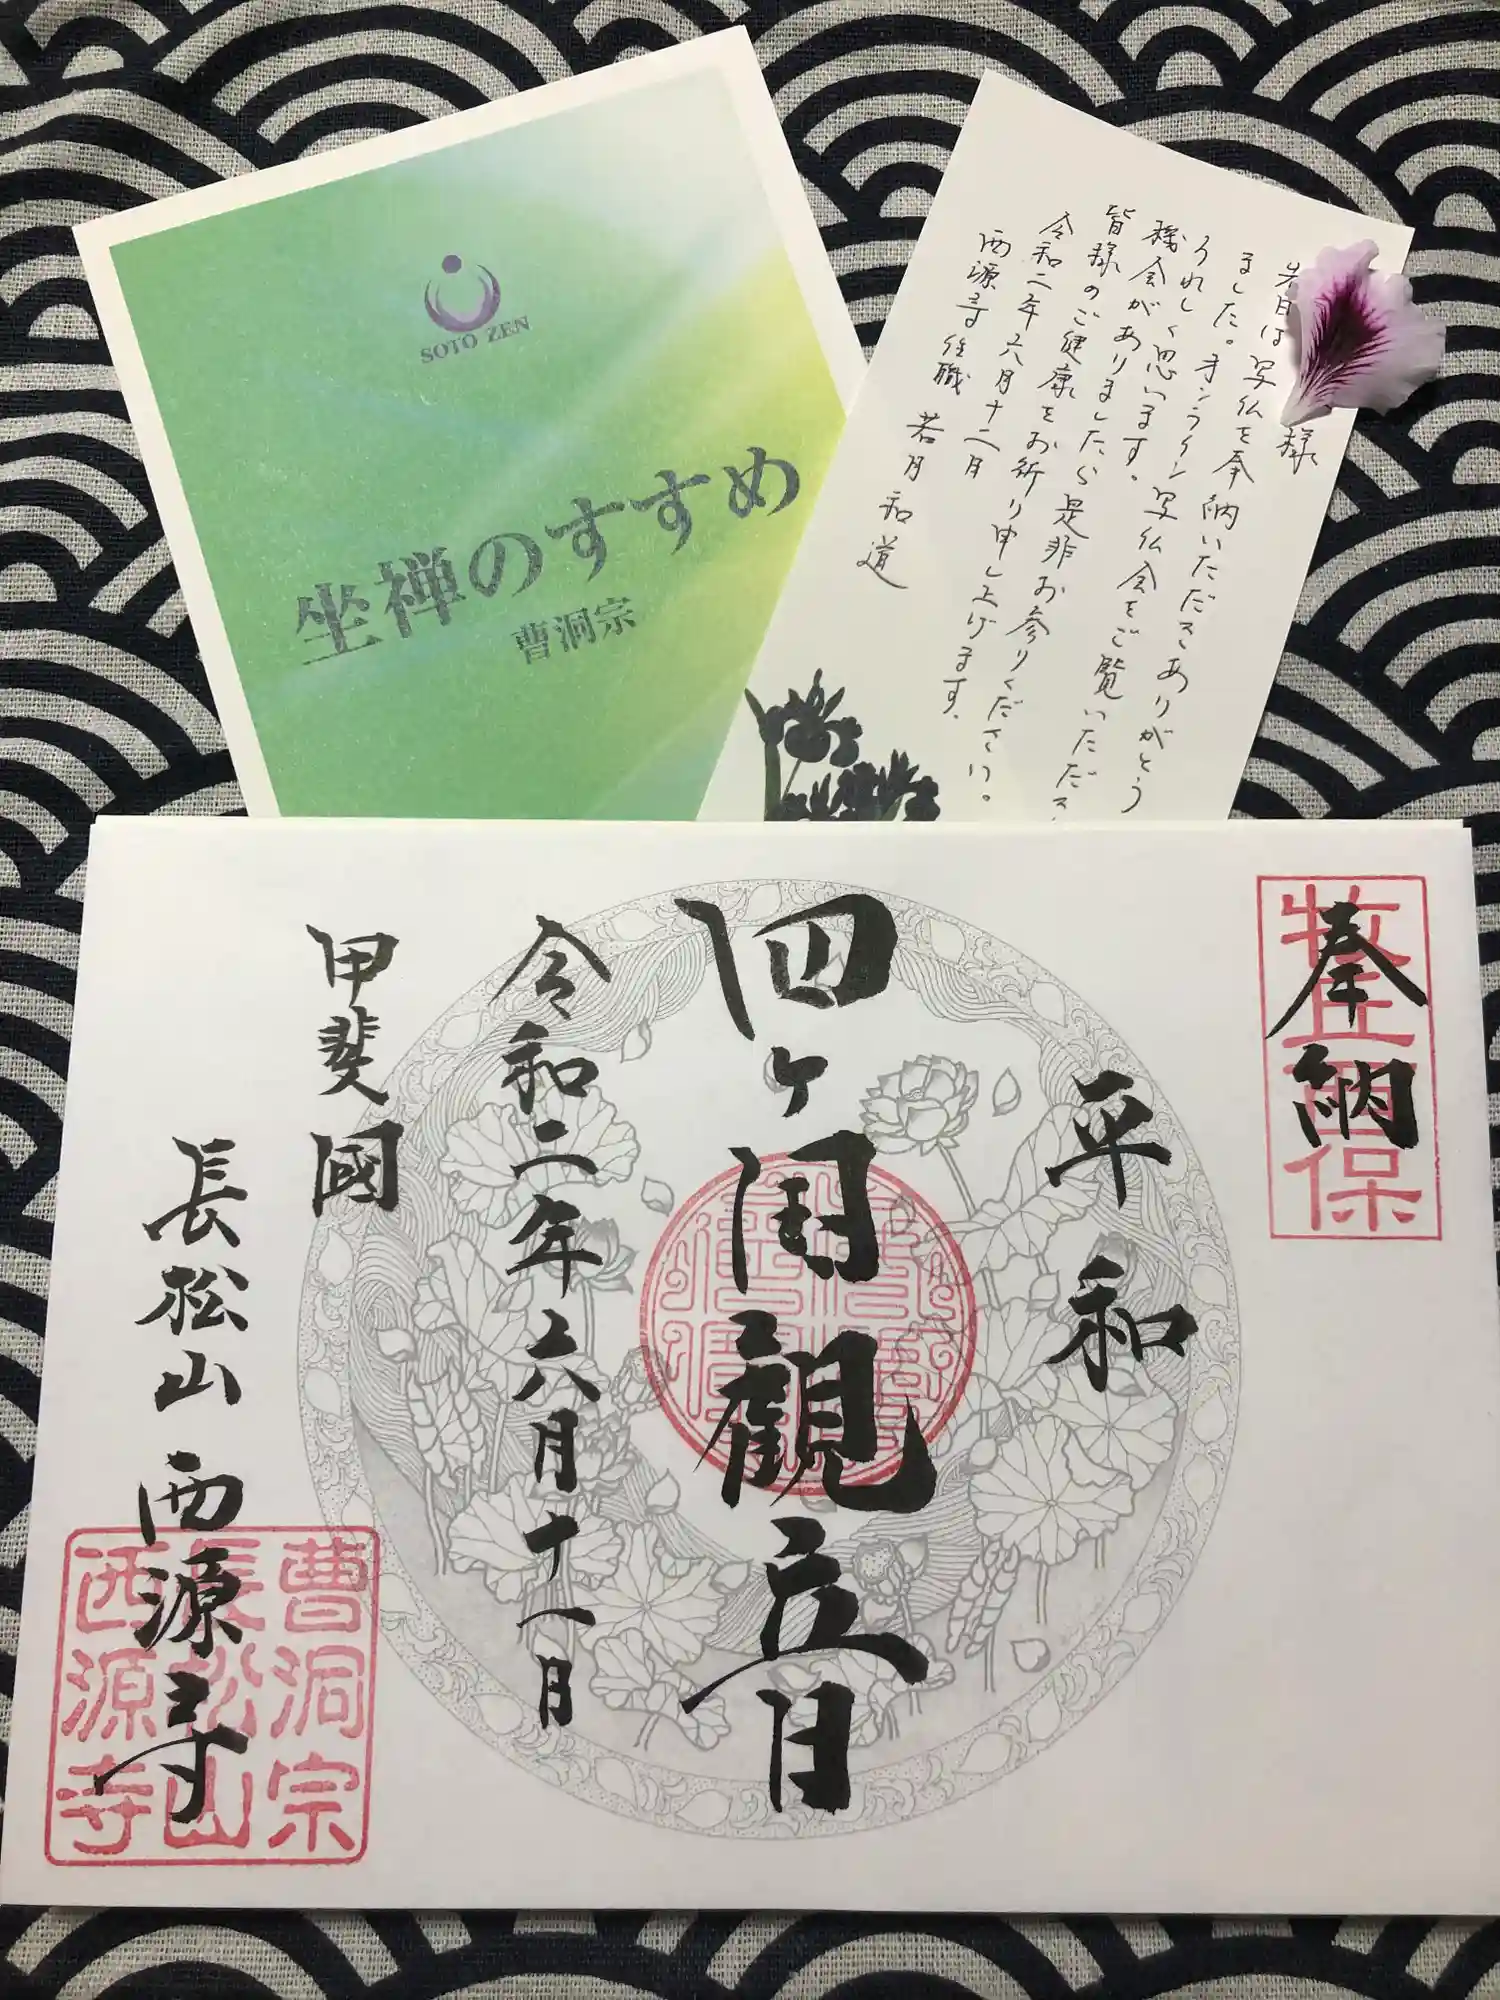 SOTO ZEN
坐禅のすすめ
曹洞宗
様
は写仏を奉納いただきありがとう
ました。オンライン写仏会をご覧いただき
うれしく思います。
機会がありましたら是非お参りください。
皆様のご健康をお祈り申し上げます。
令和二年六月十二日
西源寺住職 若月和道
奉納
平和
観音
令和二年六月十
甲斐國
長松山西源寺
曹洞宗
長松山
西源寺